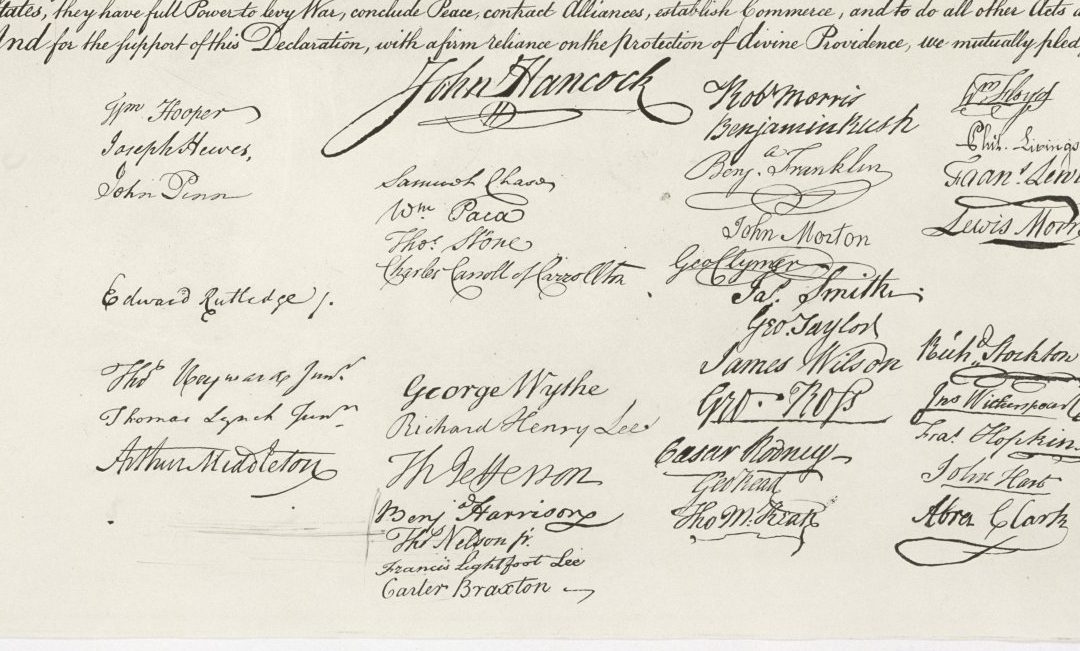 States, they have full Power to levy War, conclude Peace, contract Alliances, establish Commerce, and to do all other Acts
And for the support of this Declaration, with a firm reliance on the protection of divine Providence, we mutually pled
John Hancock
Wm Hooper
Joseph Hewes,
John Penn
Edward Rutledge /.
Thos Heyward Junr.
Thomas Lynch Junr.
Arthur Middleton
Samuel Chase
Wm. Paca
Thos. Stone
Charles Carroll of Carrollton
George Wythe
Richard Henry Lee
Th Jefferson
Benj Harrison
Thos Nelson jr.
Francis Lightfoot Lee
Carter Braxton
Robt Morris
Benjamin Rush
Benj. Franklin
John Morton
Geo Clymer
Jas. Smith
Geo. Taylor
James Wilson
Geo. Ross
Caesar Rodney
Geo Read
Tho M:Kean
Wm Floyd
Phil. Livings
Frans. Lewi
Lewis Morr
Richd. Stockton
Jno Witherspoon
Fras. Hopkin
John Hart
Abra Clark